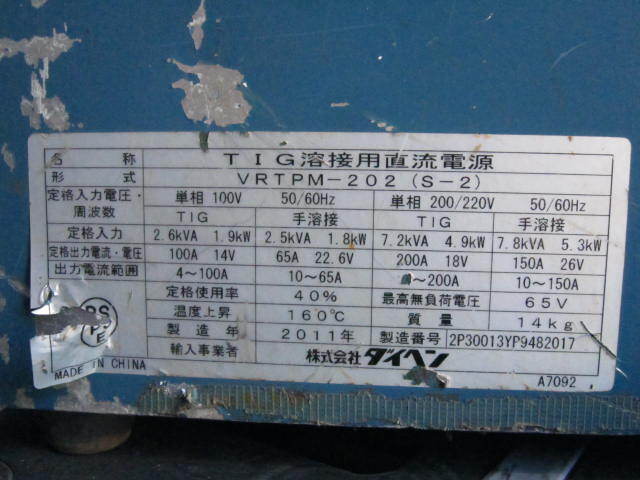 名 称 TIG溶接用直流電源
形 式 VRTPM-202 (S-2)
定格入力電圧・周波数 単相 100V 50/60Hz 単相 200/220V 50/60Hz
TIG 手溶接 TIG 手溶接
定格入力 2.6kVA 1.9kW 2.5kVA 1.8kW 7.2kVA 4.9kW 7.8kVA 5.3kW
定格出力電流・電圧 100A 14V 65A 22.6V 200A 18V 150A 26V
出力電流範囲 4~100A 10~65A ~200A 10~150A
定格使用率 40% 最高無負荷電圧 65V
温度上昇 160℃ 質 量 14kg
製 造 年 2011年 製造番号 2P30013YP9482017
輸入事業者 株式会社 ダイヘン
PS
E
MADE IN CHINA
A7092